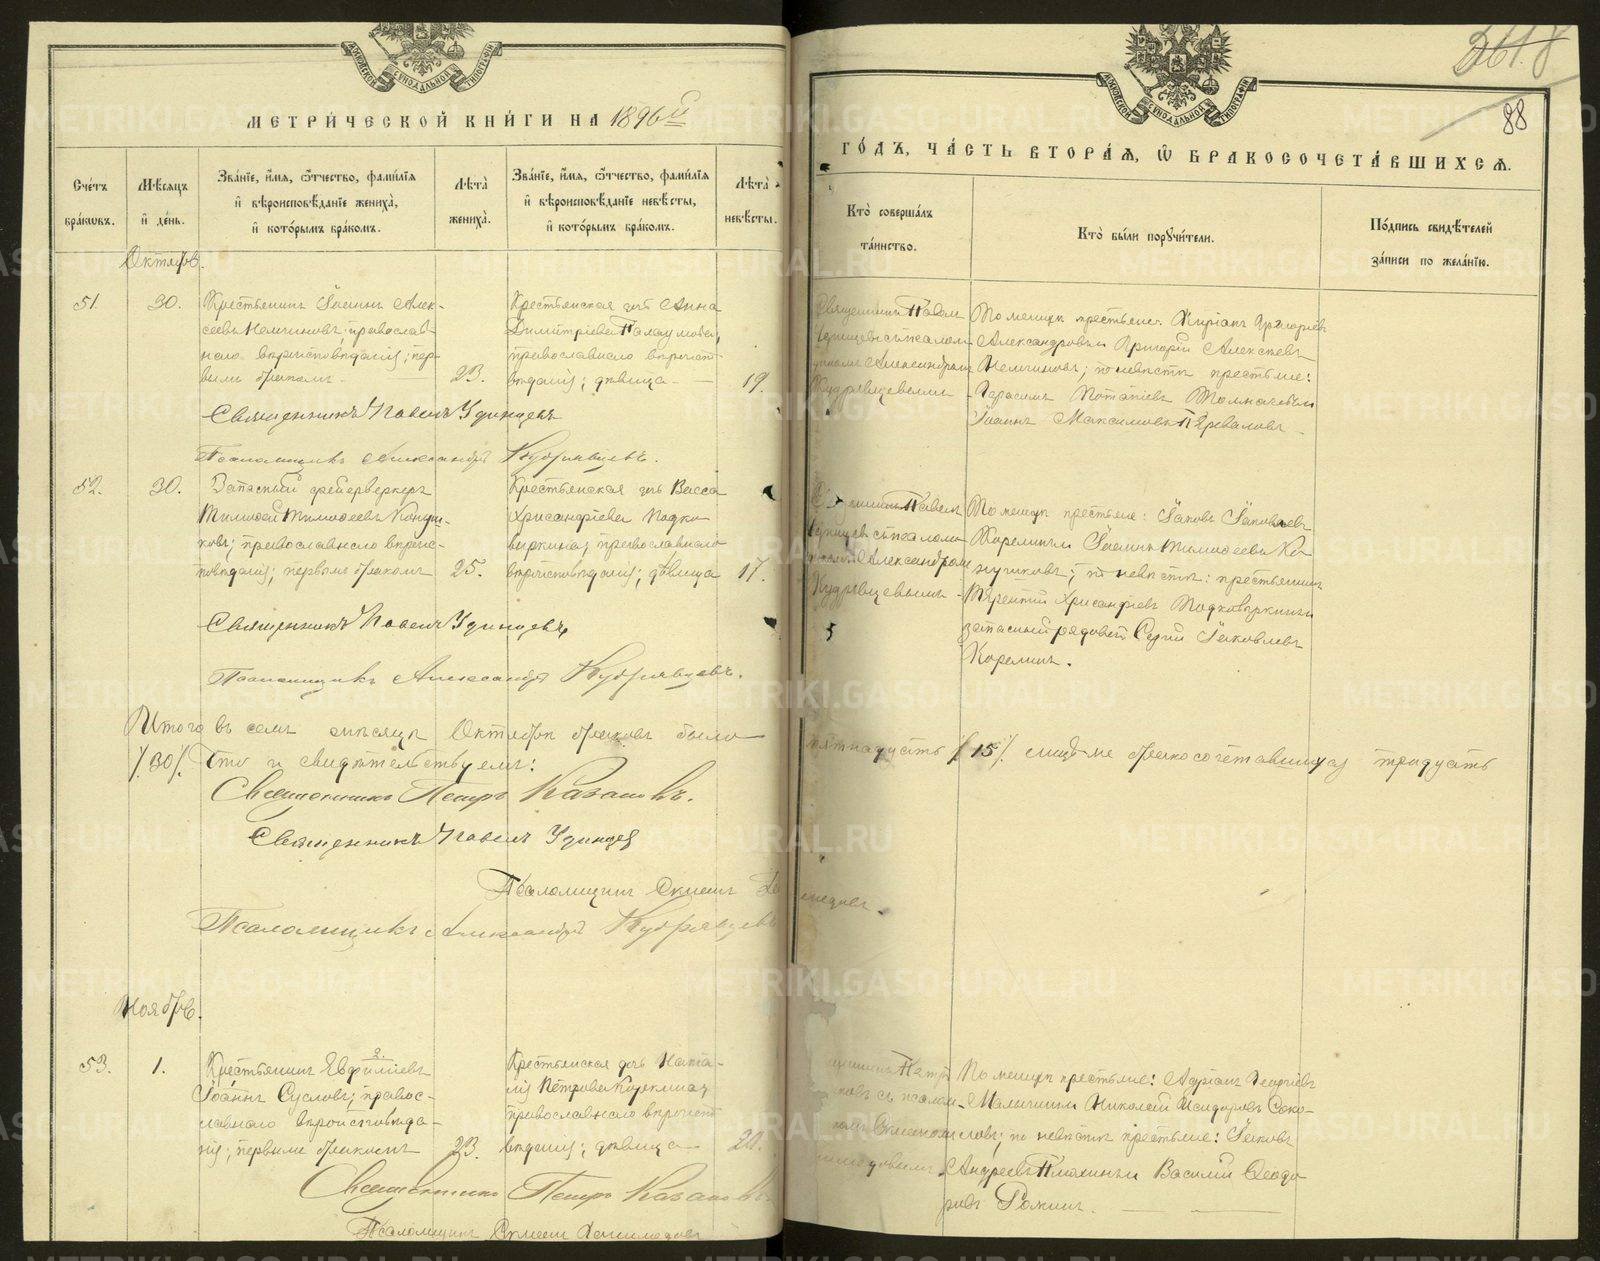 МЕТРИЧЕСКОЙ КНИГИ НА 1896й
ГОДЪ, ЧАСТЬ ВТОРАЯ, Ѡ БРАКОСОЧЕТАВШИХСЯ.
МОСКОВСКОЙ СѴНОДАЛЬНОЙ ТИПОГРАФІИ
МОСКОВСКОЙ СѴНОДАЛЬНОЙ ТИПОГРАФІИ
88
Счетъ браковъ.
Мѣсяцъ и день.
Званіе, имя, отчество, фамилія и вѣроисповѣданіе жениха, и которымъ бракомъ.
Лѣта жениха.
Званіе, имя, отчество, фамилія и вѣроисповѣданіе невѣсты, и которымъ бракомъ.
Лѣта невѣсты.
Кто совершалъ таинство.
Кто были поручители.
Подпись свидѣтелей записи по желанію.
Октябрь.
51.
30.
Крестьянинъ Іоаннъ Алек-
сеевъ Немчиновъ; православ-
наго вѣроисповѣданія; пер-
вымъ бракомъ.
23.
Крестьянская дочь Анна
Димитріева
православнаго вѣроиспо-
вѣданія; дѣвица
19.
Священникъ Павелъ
Удинцевъ съ псалом-
щикомъ Александромъ
Кудрявцевымъ
По женихѣ крестьяне: Киріакъ Григоріевъ
Александровъ и Григорій Алексѣевъ
Немчиновъ; по невѣстѣ крестьяне:
Герасимъ Потапіевъ Толмачевъ и
Іоаннъ Максимовъ Переваловъ
Священникъ Павелъ Удинцевъ
Псаломщикъ Александръ Кудрявцевъ.
52.
30.
Запасный фейерверкеръ
Тимофей Тимофеевъ Конуш-
ковъ; православнаго вѣроис-
повѣданія; первымъ бракомъ
25.
Крестьянская дочь Васса
Хрисандріева Подко-
выркина; православнаго
вѣроисповѣданія; дѣвица
17.
Священникъ Павелъ
Удинцевъ съ псалом-
щикомъ Александромъ
Кудрявцевымъ
По женихѣ крестьяне: Іаковъ Іаковлевъ
Карелинъ и Іоаннъ Тимофеевъ Ко-
нушковъ; по невѣстѣ: крестьянинъ
Терентій Хрисанфіевъ Подковыркинъ и
запасный рядовой Сергій Іаковлевъ
Карелинъ.
Священникъ Павелъ Удинцевъ
Псаломщикъ Александръ Кудрявцевъ.
Итого въ семъ мѣсяцѣ Октябрѣ браковъ было пятнадцать /15/. лицъ-же бракосочетавшихся тридцать
/30/. Что и свидѣтельствуемъ:
Священникъ Петръ Казаковъ.
Священникъ Павелъ Удинцев
Псаломщикъ
Псаломщикъ Александръ Кудрявцевъ
Ноябрь.
53.
1.
Крестьянинъ Евфиміевъ
Іоаннъ Сусловъ; правос-
лавнаго вѣроисповѣда-
нія; первымъ бракомъ
23.
Крестьянская дочь Ната-
лія Петрова Корелина;
православнаго вѣроиспо-
вѣданія; дѣвица
20.
По женихѣ крестьяне: Адріанъ Георгіевъ
Маличинъ и Николай Исидоровъ Соко-
ловъ; по невѣстѣ крестьяне: Іаковъ
Андреевъ Плюхинъ и Василій Ѳеодо-
ровъ
Священникъ Петръ Казаковъ
Псаломщикъ
METRIKI.GASO-URAL.RU